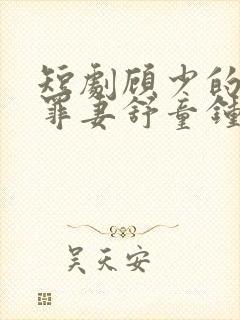 短劇顾少的
罪妻舒童鍾
吴天安